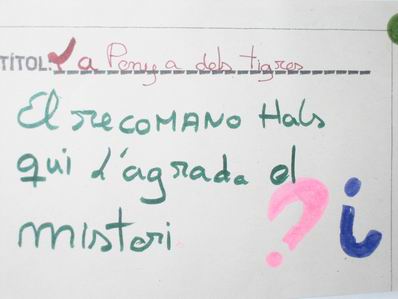 TÍTOL: La Penya dels tigres
El recomano Hals
qui d'agrada el
mistori. ? i